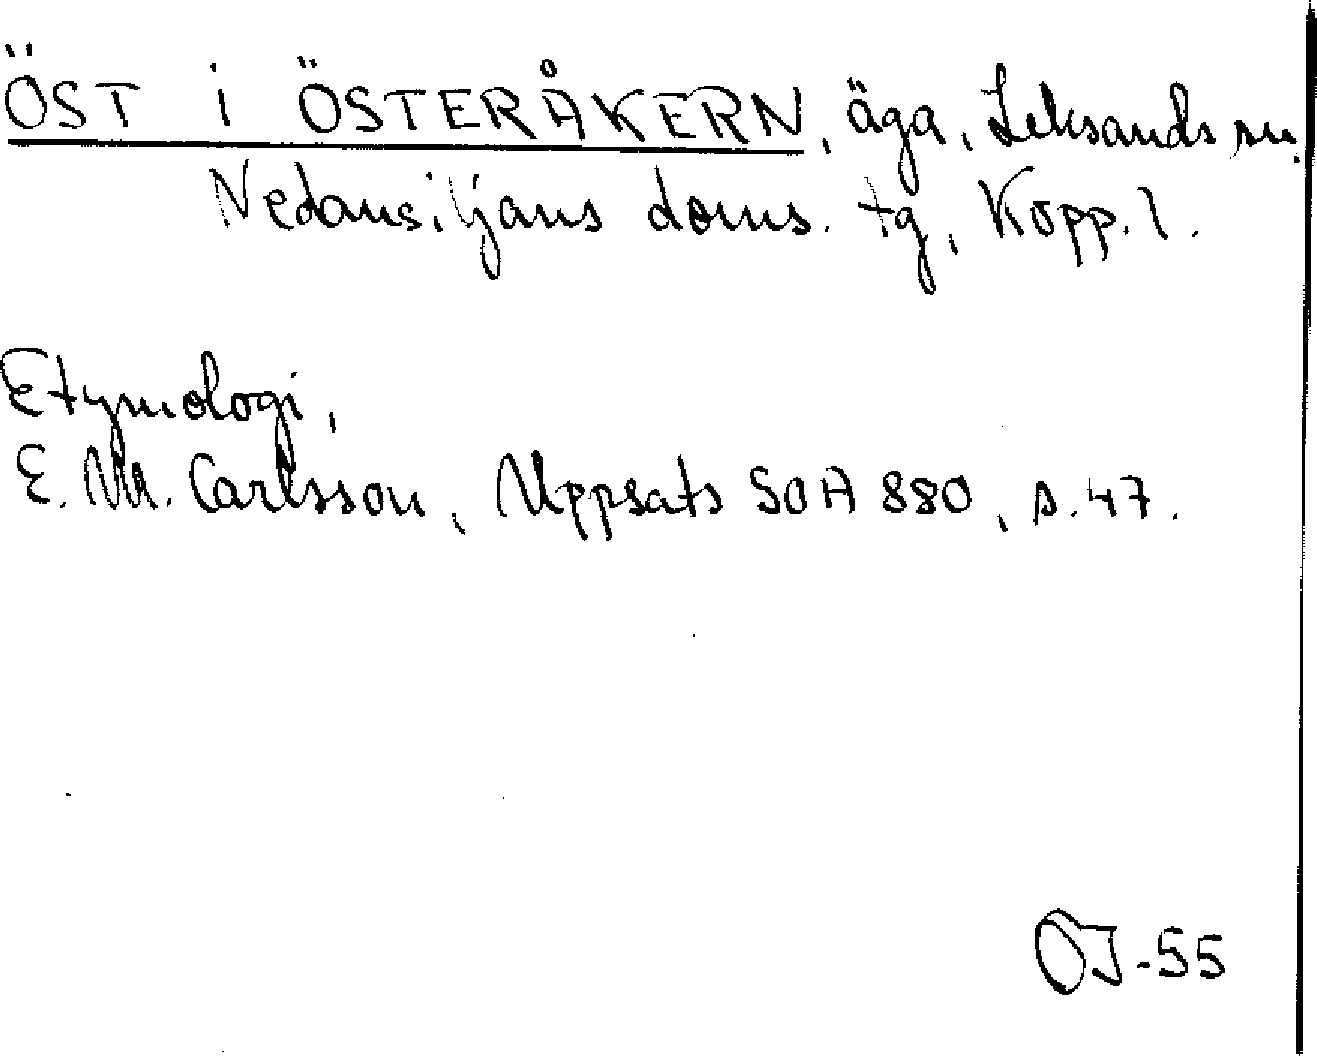 ÖST i ÖSTERÅKERN, äga, Leksands sn.
Nedansiljans doms. tg, Kopp. l.
Etymologi,
E. M. Carlsson, Uppsats SOA 880, s. 47.
OJ-55